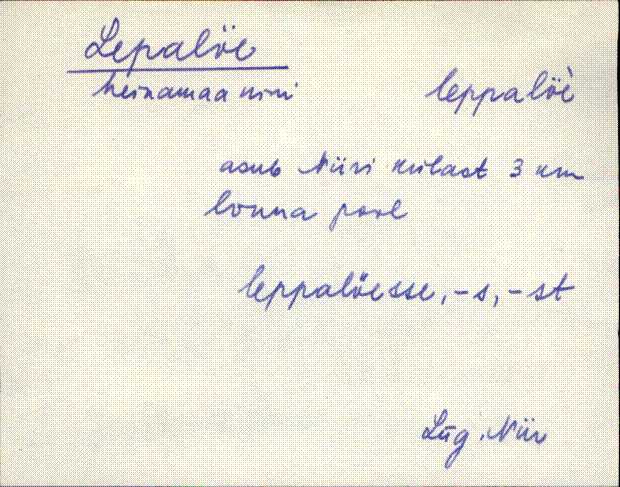 Lepalõe
heinamaa nimi
leppalõè
asub Niiri külast 3 km
lõuna pool
leppalõesse, -s, -st
Lüg. Niir